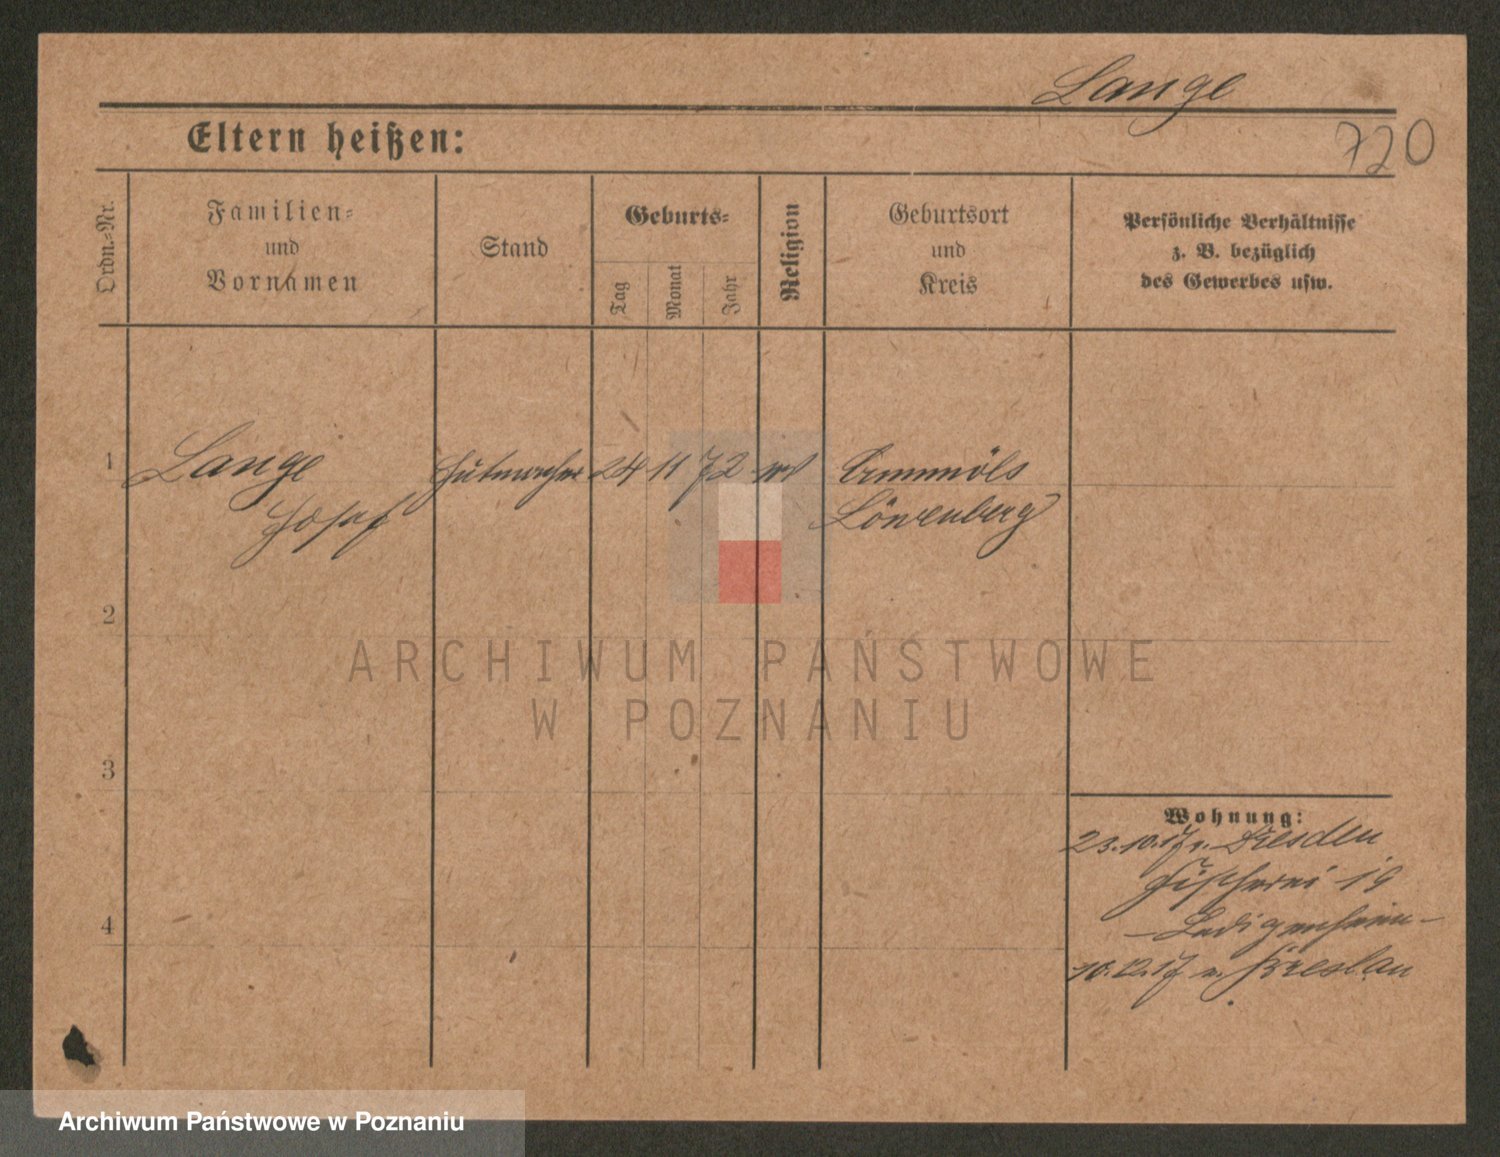 Lange
720
Eltern heißen:
Ordn.-Nr.
Familien-
und
Vornamen
Stand
Geburts-
Tag
Monat
Jahr
Religion
Geburtsort
und
Kreis
Persönliche Verhältnisse
z. B. bezüglich
des Gewerbes usw.
1
Lange
Josef
Hutmacher
24
11
72
Löwenberg
2
ARCHIWUM PAŃSTWOWE
W POZNANIU
3
4
Wohnung:
23.10.17 v. Dresden
Fischerei 19
- Ledigenheim -
10.12.17 n. Breslau
Archiwum Państwowe w Poznaniu